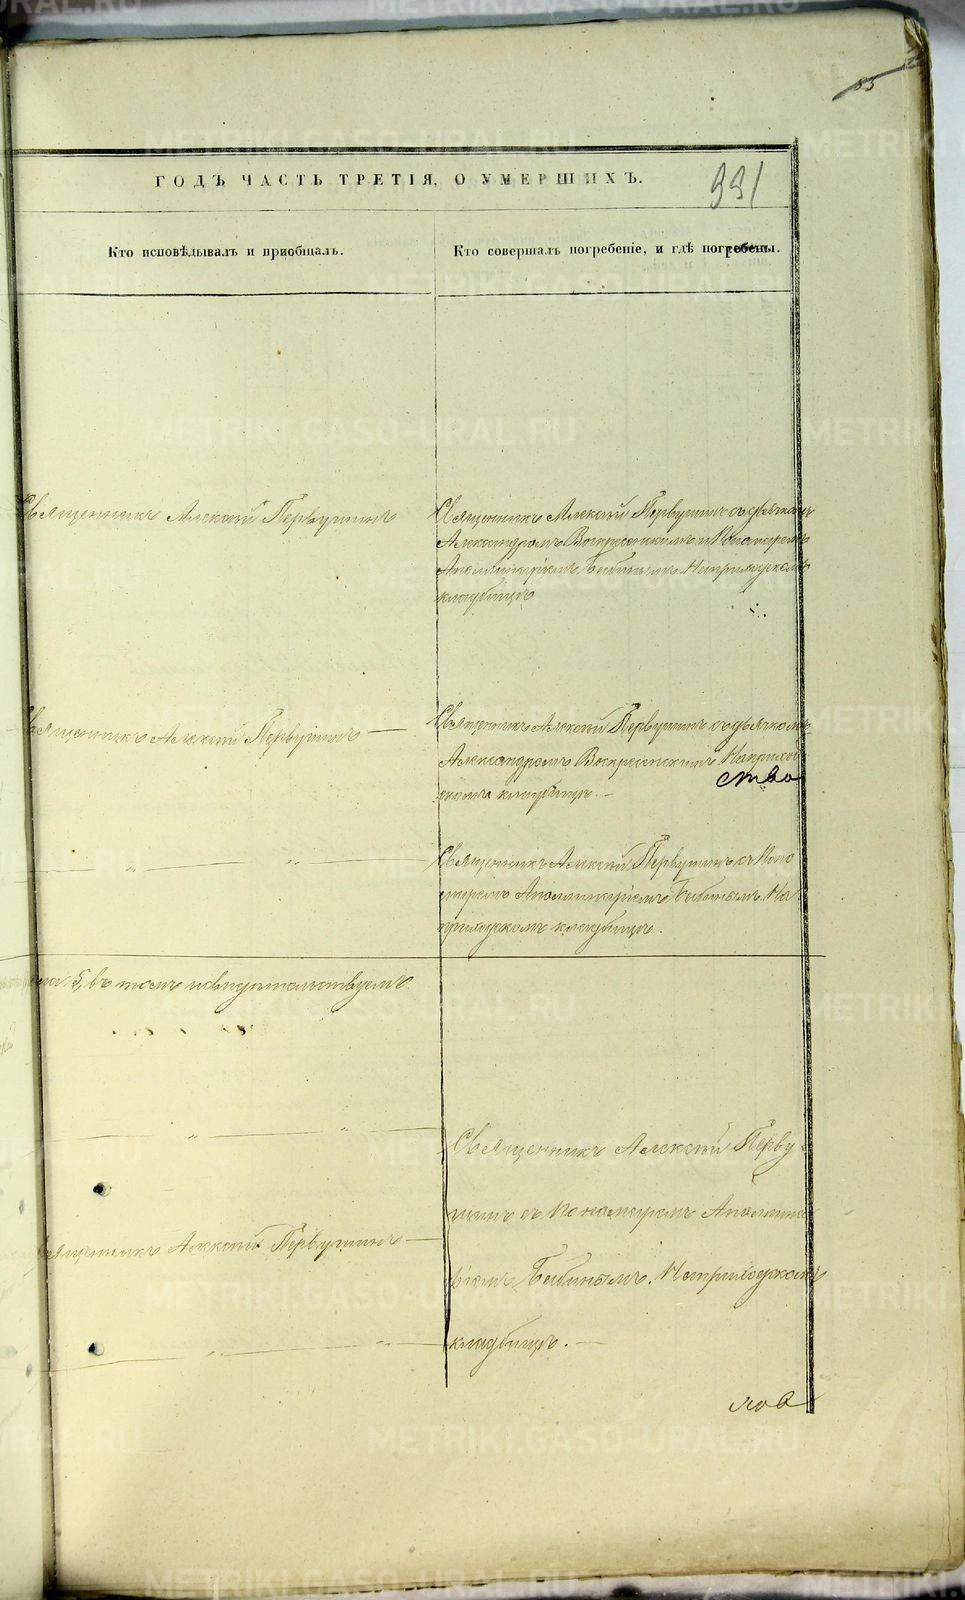 85
ГОДЪ ЧАСТЬ ТРЕТІЯ, О УМЕРШИХЪ.
991
Кто исповѣдывалъ и приобщалъ.
Кто совершалъ погребеніе, и гдѣ погребены.
Священникъ Алексий Первушинъ
Священникъ Алексий Первушинъ съ дьячкомъ
Александромъ Воскресенскимъ и Пономаремъ
Аполлинаріемъ Бабинымъ. На приходскомъ
кладбищѣ
Священникъ Алексий Первушинъ —
Священникъ Алексий Первушинъ съ дьячкомъ
Александромъ Воскресенскимъ. На приход
ство
скомъ кладбищѣ. —
— „ — „ —
Священникъ Алексий Первушинъ съ Поно
маремъ Аполлинаріемъ Бабинымъ. На
приходскомъ кладбищѣ.
5, въ томъ и свидѣтельствуемъ
— „ — „ —
Священникъ Алексий Перву
шинъ съ Пономаремъ Аполлина
ріемъ Бабинымъ. На приходскомъ
кладбищѣ. —
Священникъ Алексий Первушинъ —
— „ — „ —
METRIKI.GASO-URAL.RU